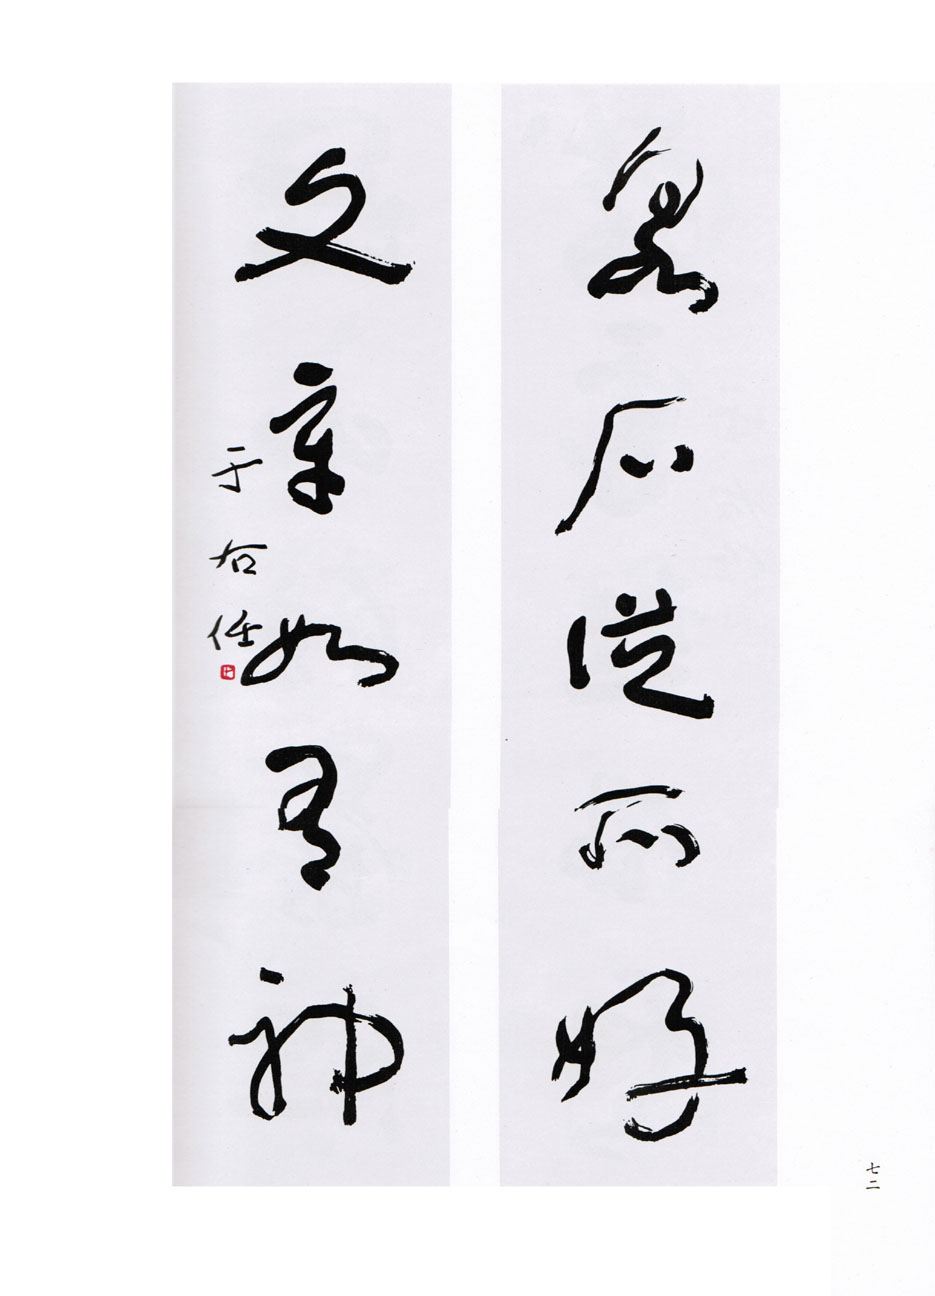 泉石從所好
文章如有神
于右任
七二